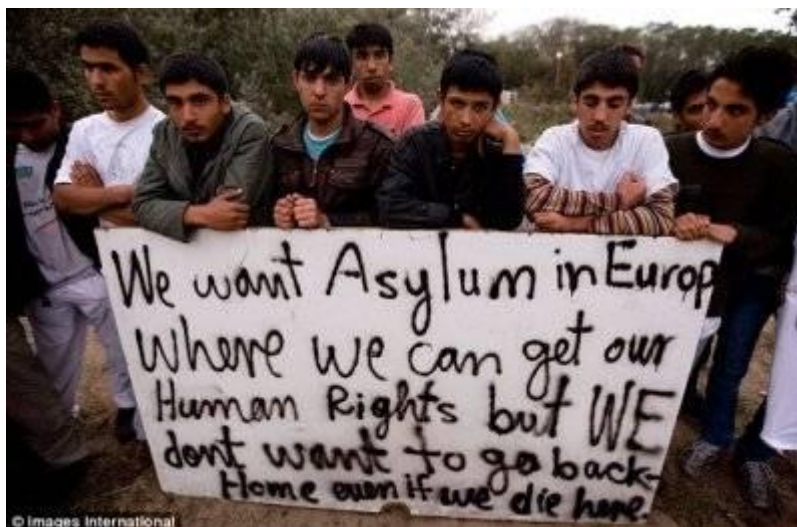 We want Asylum in Europ
where we can get our
Human Rights but WE
dont want to go back-
Home even if we die here.
© Images International